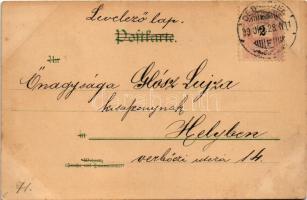 Levelező lap.
Postkarte.
An
Őnagysága Glósz Lujza
kisasszonynak
in
Helyben
verbőczi utcza 14
71.